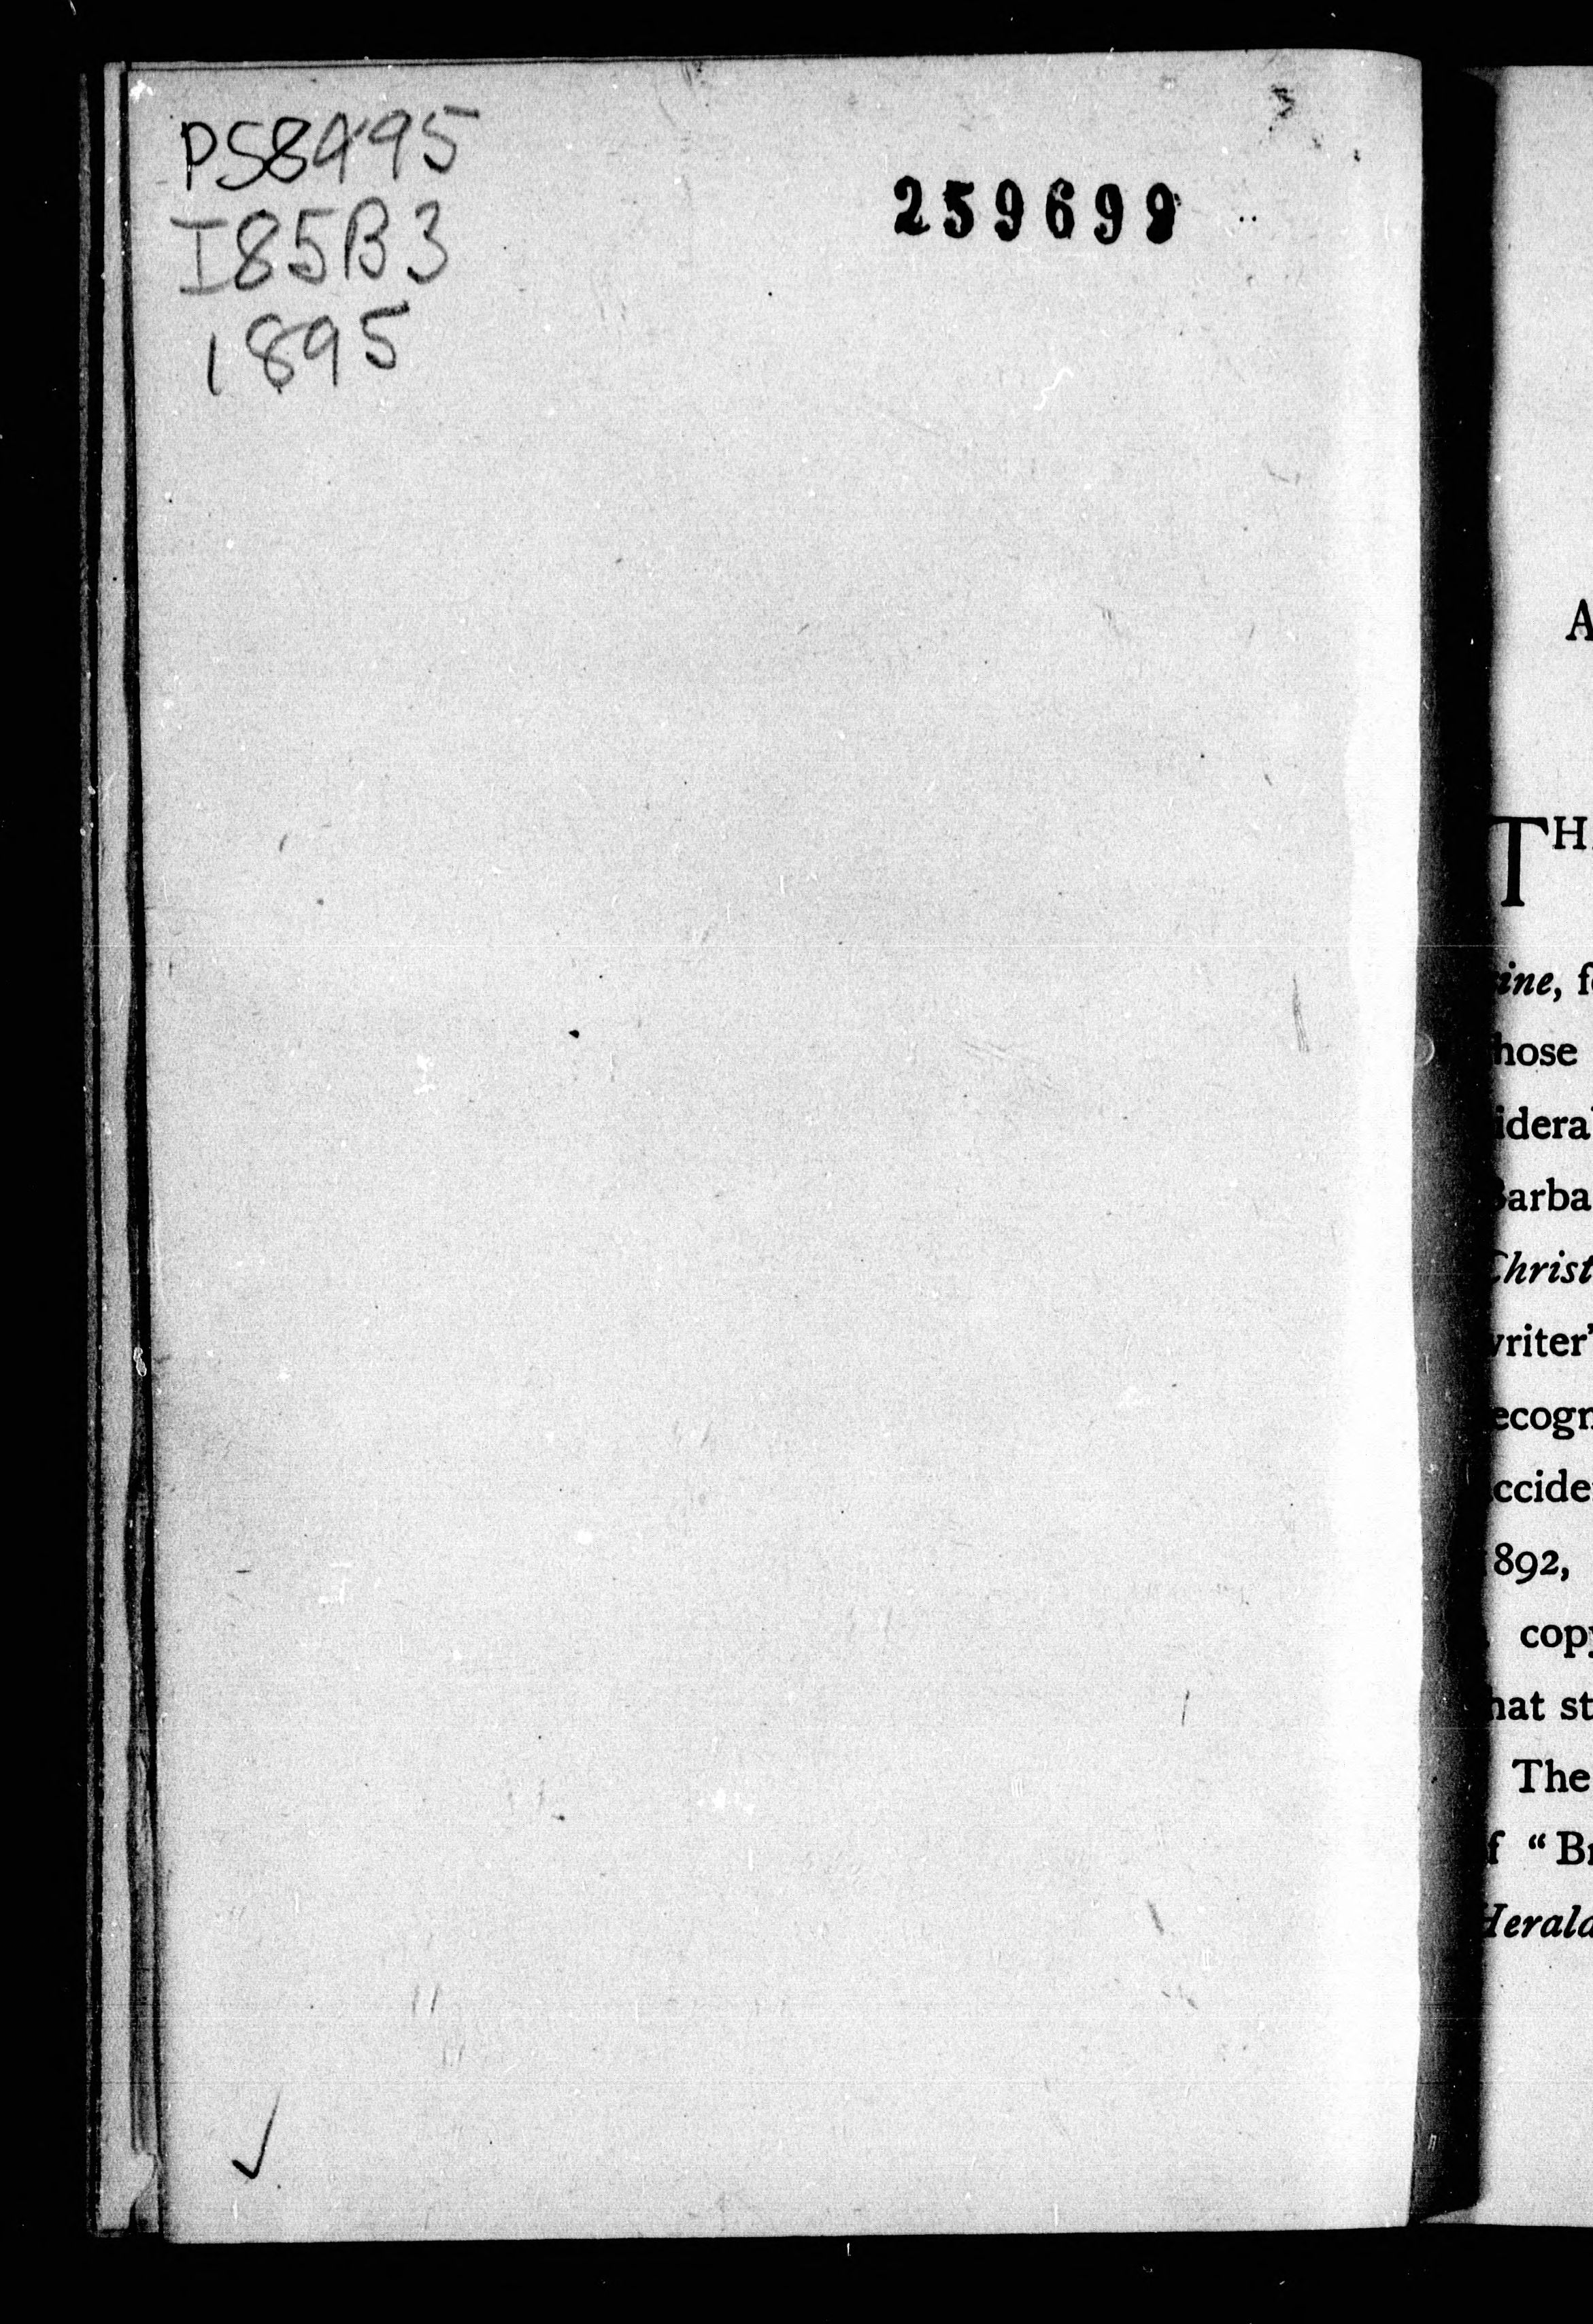 PS8495
I85B3
1895
259699
A
TH
ine, f
hose
idera
Barba
Christ
writer'
ecogn
ccide
892,
copy
hat st
The
f "Br
Herald